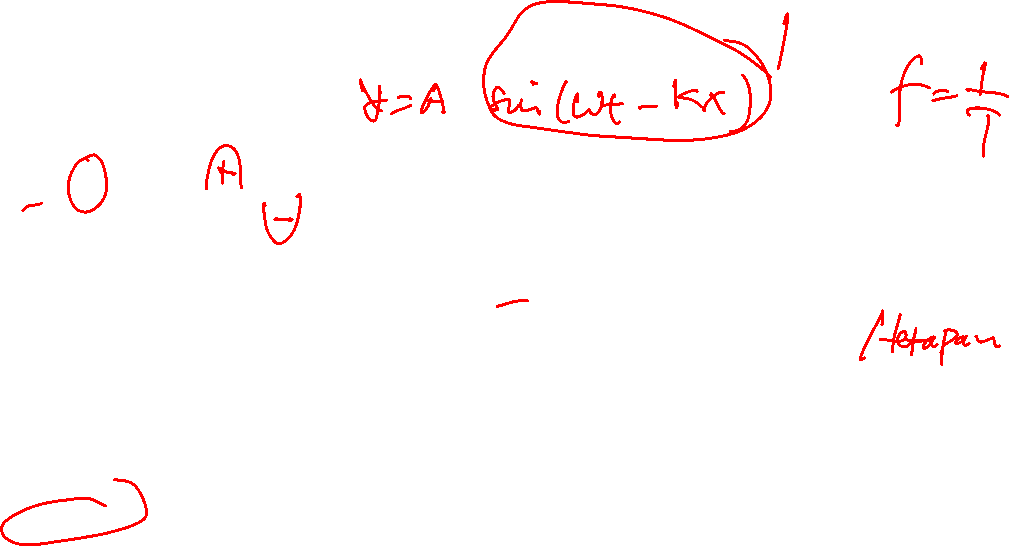 y = A sin(ωt - kx) 1
f = 1/T
- 0
+
-
-
/tetapan